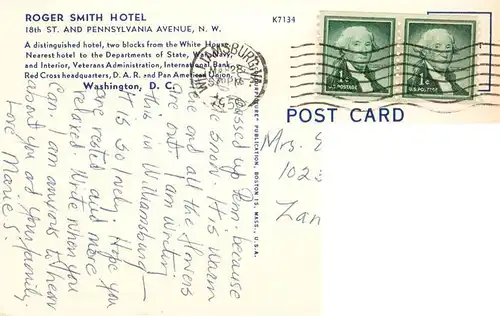 ROGER SMITH HOTEL
18th ST. AND PENNSYLVANIA AVENUE, N. W.
K7134
A distinguished hotel, two blocks from the White House.
Nearest hotel to the Departments of State, War, Navy
and Interior, Veterans Administration, International Bank,
Red Cross headquarters, D. A. R. and Pan American Union.
Washington, D. C.
WILLIAMSBURG, VA.
1¢
U.S. POSTAGE
1¢
U.S. POSTAGE
POST CARD
PUBLICATION, BOSTON 15, MASS., U.S.A.
Mrs.
102
Lan
passed up Penn. because
the snow. It's warm
here and all the flowers
are out. I am writing
this in Williamsburg —
It is so lovely. Hope you
are rested and more
relaxed. Write when you
can. I am anxious to hear
about you and your family.
Love Marie S.